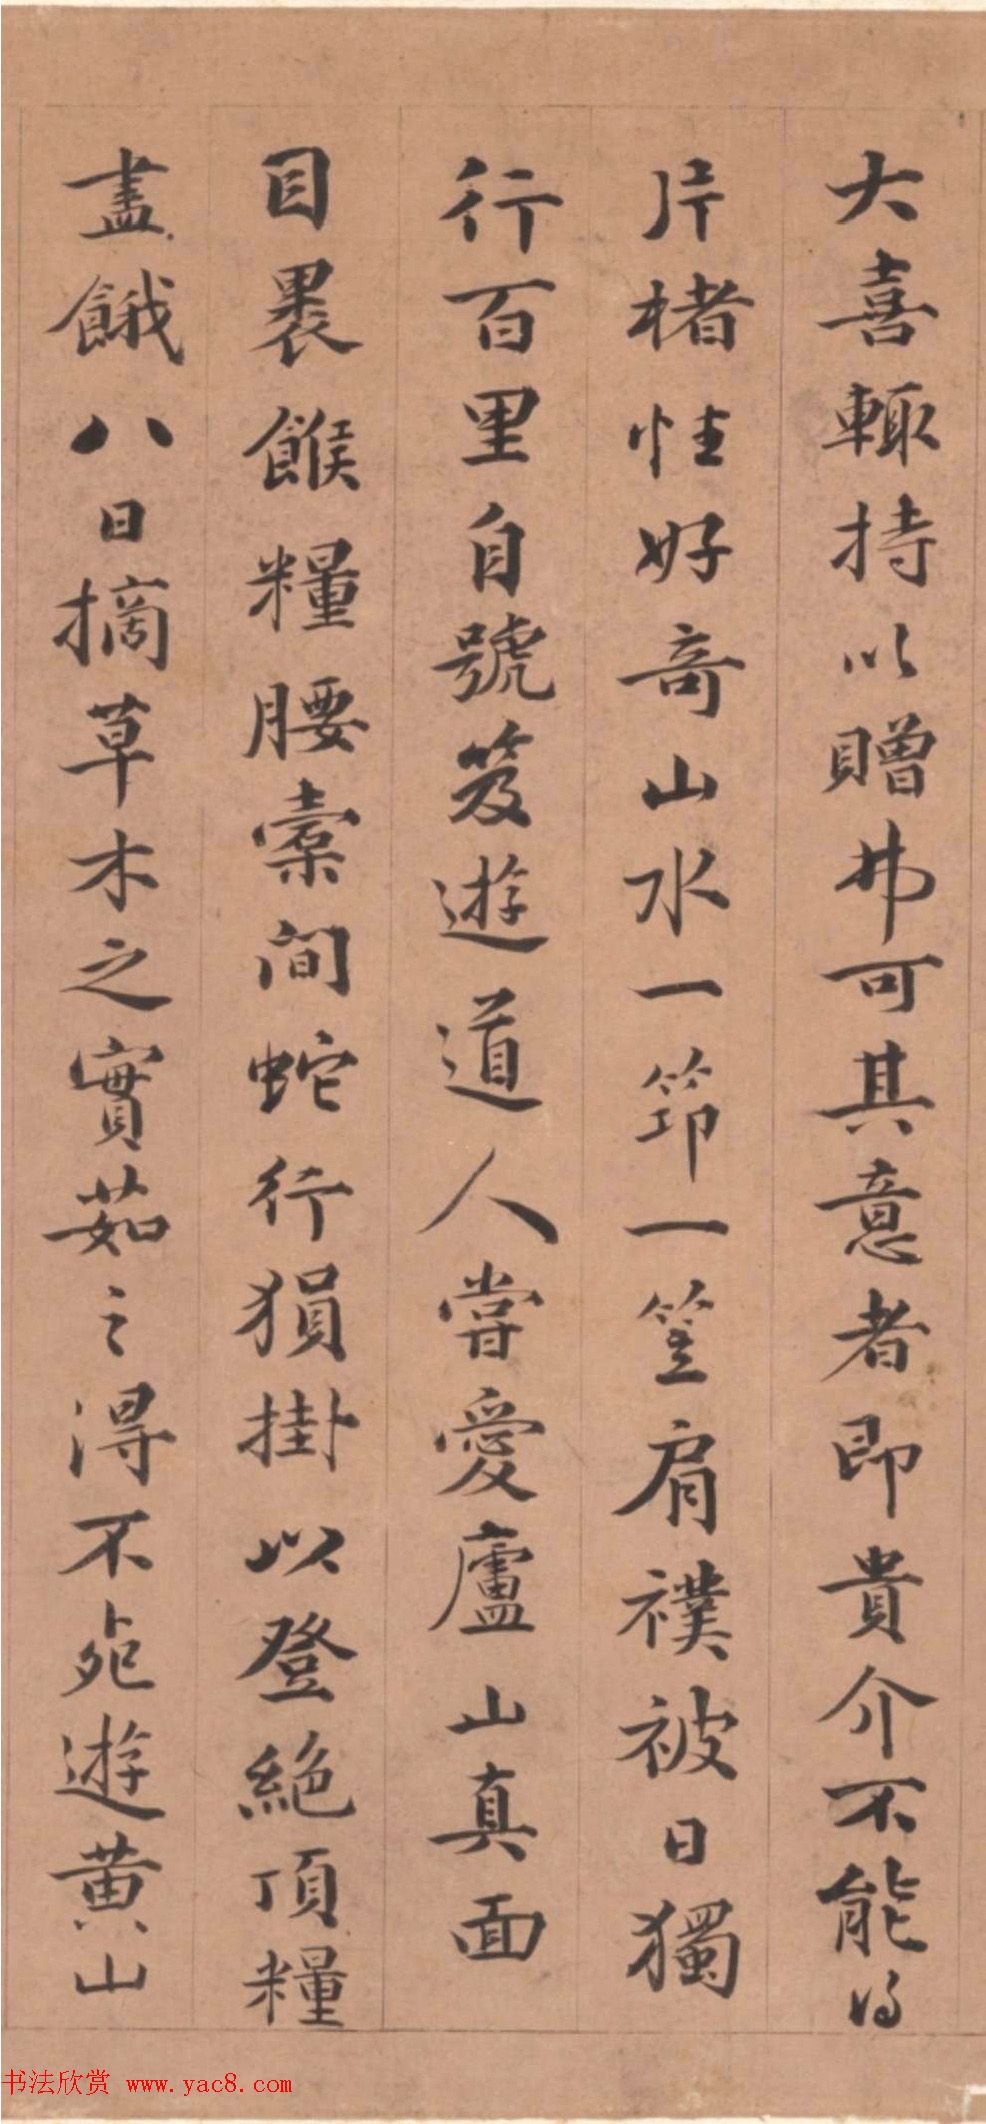 大喜輙持以贈弗可其意者即貴介不能得
片楮性好奇山水一笻一笠肩襆被日獨
行百里自號笈遊道人嘗愛廬山真面
目裹餱糧腰橐間蛇行狽掛以登絕頂糧
盡餓八日摘草木之實茹之得不死遊黃山
书法欣赏 www.yac8.com